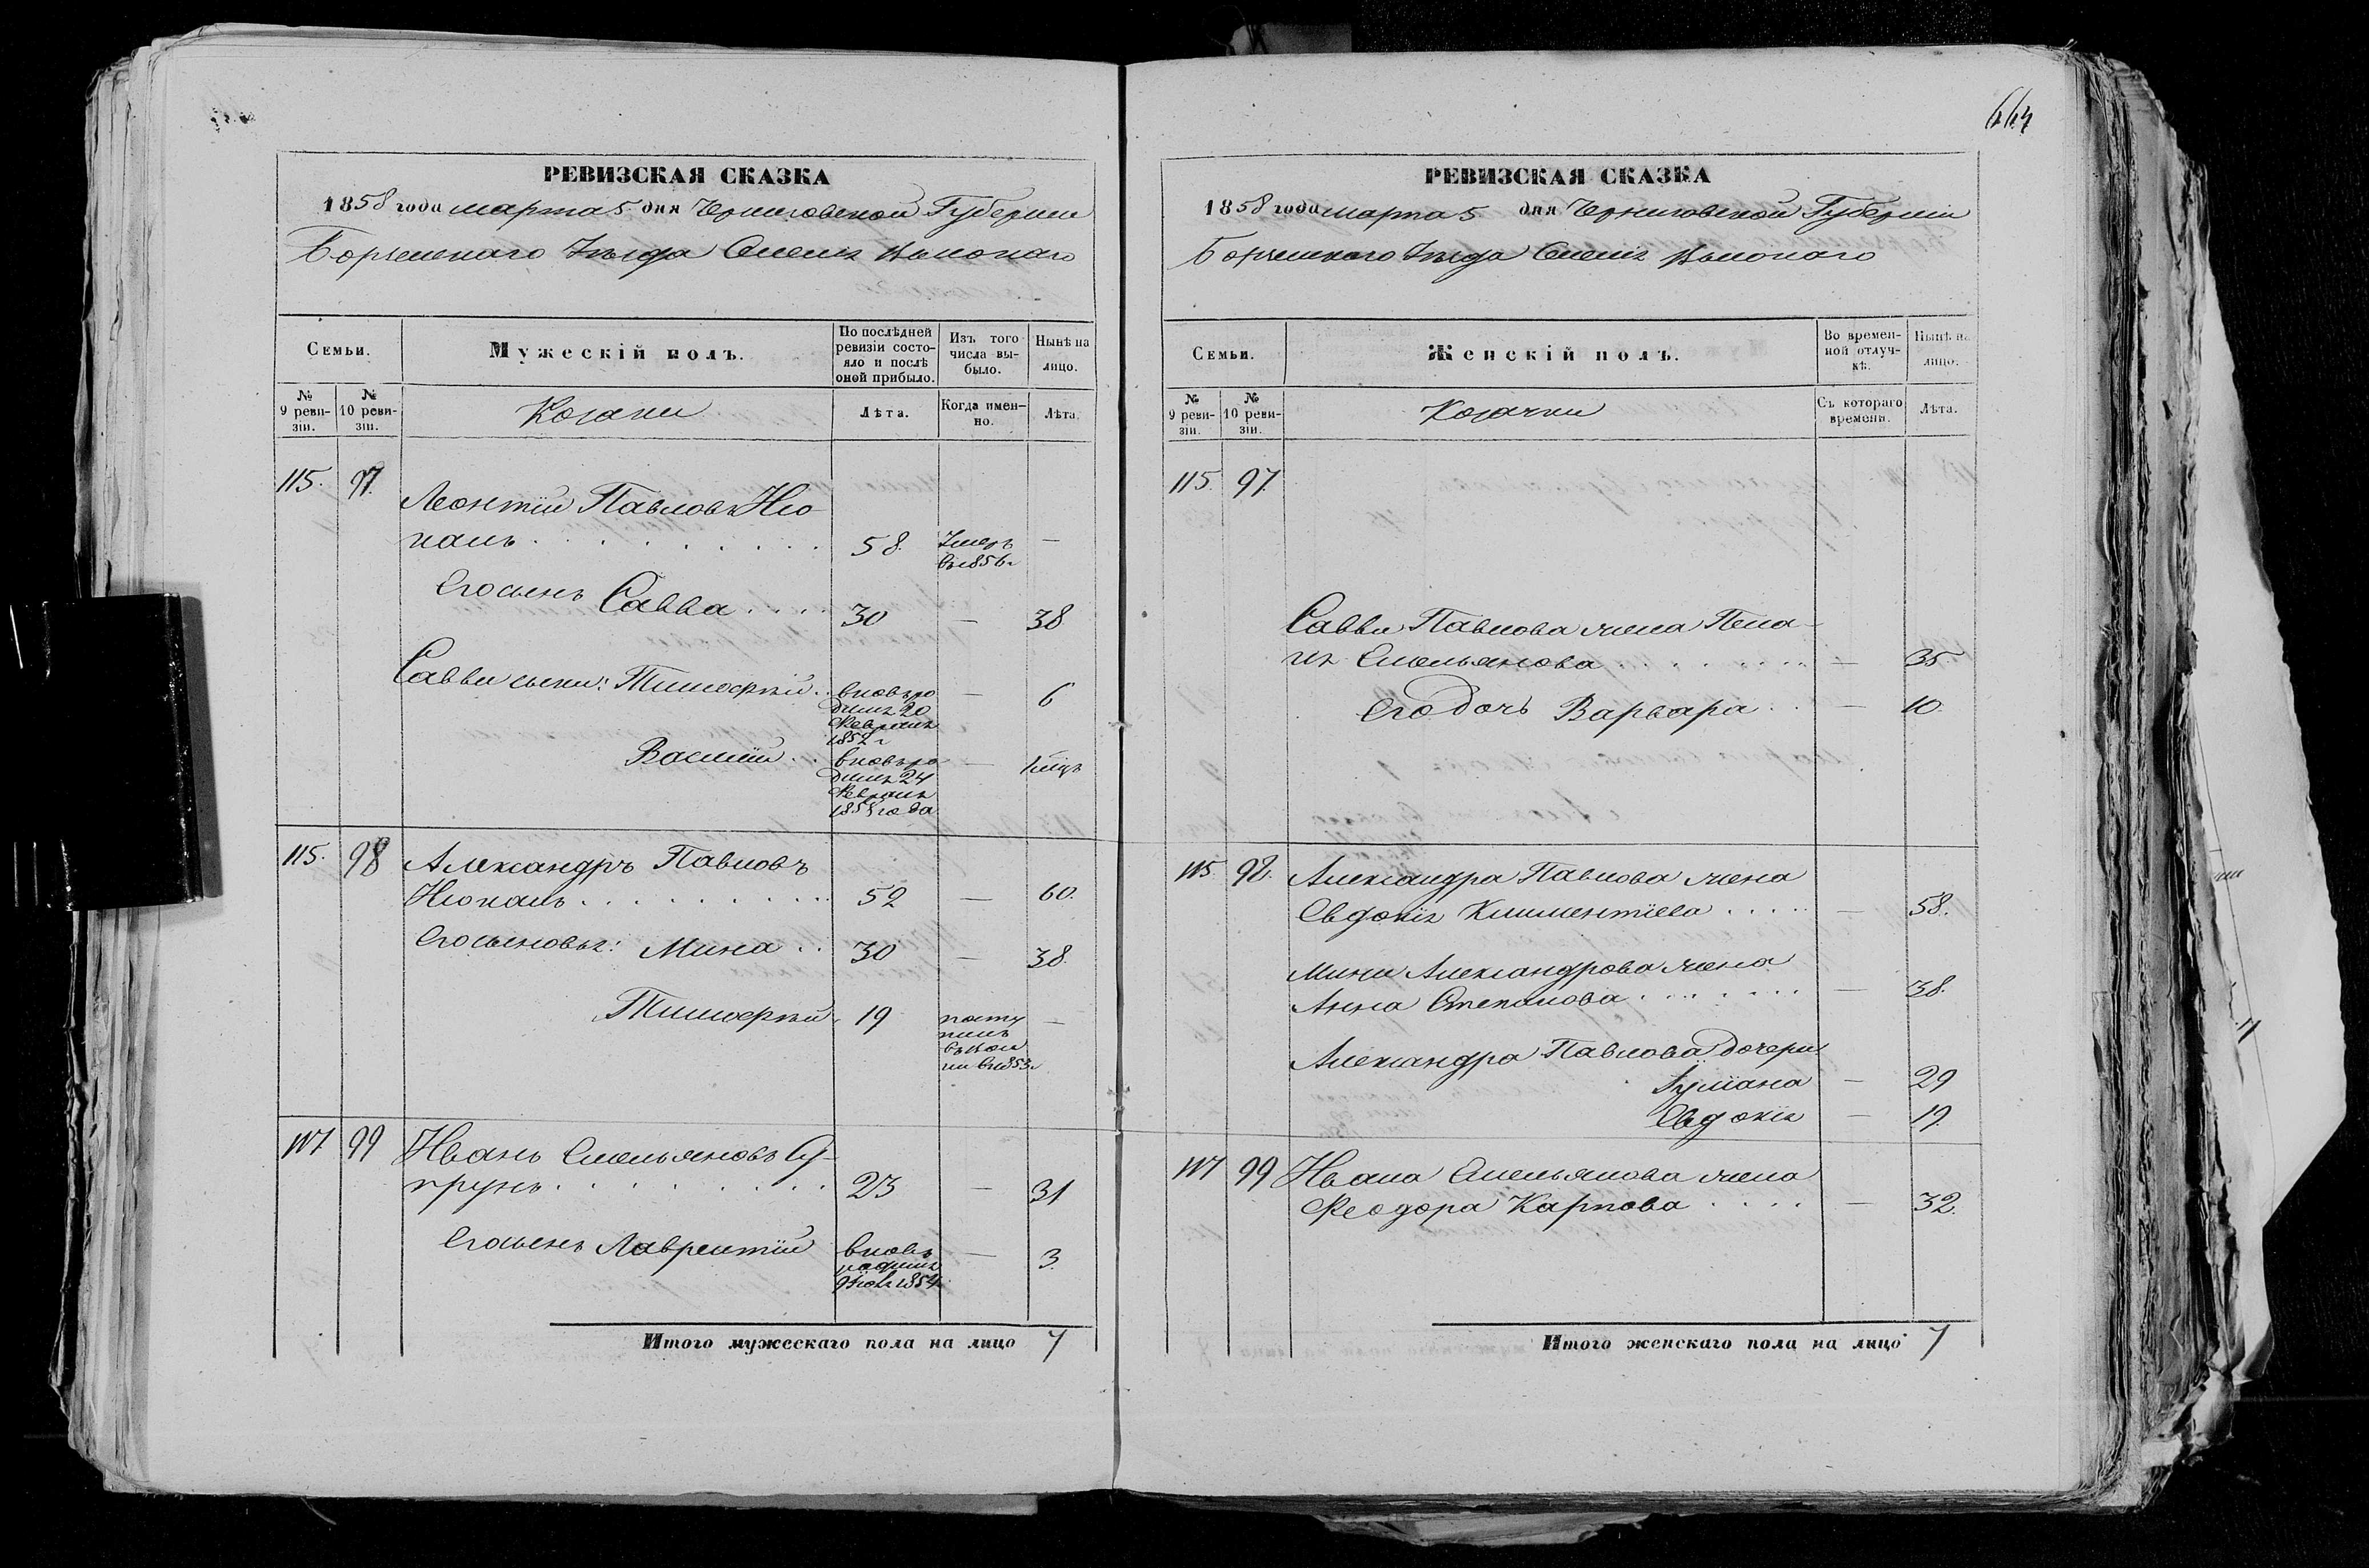 664
РЕВИЗСКАЯ СКАЗКА
1858 года марта 5 дня Черниговской Губернии
Борзенскаго Уезда
Семьи.
Мужескій полъ.
По послѣдней ревизіи состояло и послѣ оной прибыло.
Изъ того числа выбыло.
Нынѣ на лицо.
№ 9 ревизіи.
№ 10 ревизіи.
Козаки
Лѣта.
Когда именно.
Лѣта.
115. 97. Леонтій Павловъ Ню-
паль 58. Умеръ въ 1856 г —
Его сынъ Савва 30 — 38
Саввы сыны: Тимофей вновь ро — 6
дился 20
Февраля
1852 г
Василій вновь ро — 1 мц
дился 24
Февраля
1858 года
115. 98 Александръ Павловъ
Нюпаль 52 — 60.
Его сыновья: Мина 30 — 38.
Тимофей 19 посту —
пилъ
въ 1853 г
117 99 Иванъ Емельяновъ Су-
прунъ 23 — 31
Его сынъ Лаврентій вновь — 3
родился
1854
Итого мужескаго пола на лицо 7
РЕВИЗСКАЯ СКАЗКА
1858 года марта 5 дня Черниговской Губерніи
Борзенскаго Уезда
Семьи.
Женскій полъ.
Во временной отлучкѣ.
Нынѣ на лицо.
№ 9 ревизіи.
№ 10 ревизіи.
Козачки
Съ котораго времени.
Лѣта.
115. 97.
Саввы Павлова жена Пела-
гія Емельянова — 35.
Его дочь Варвара — 10.
115 98. Александра Павлова жена
Евдокія Климентіева — 58.
Мины Александрова жена
Анна Степанова — 38.
Александра Павлова дочери
Іуліана — 29
Евдокія — 19.
117 99 Ивана Емельянова жена
Феодора Карпова — 32.
Итого женскаго пола на лицо 7